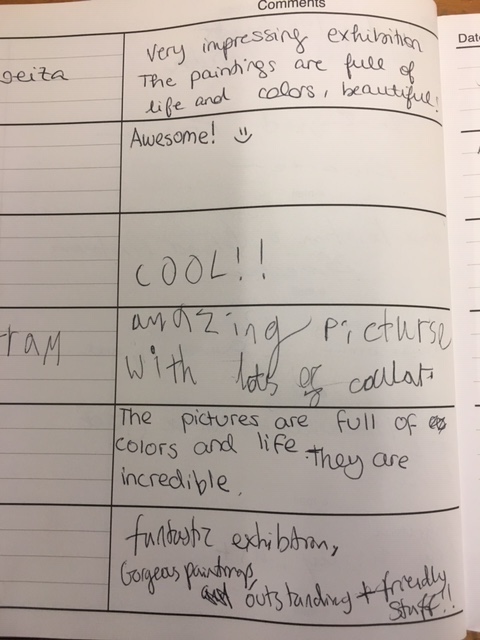 Comments
Date
very impressing exhibition
The paintings are full of
life and colors, beautiful!
Awesome!
COOL!!
amazing picturse
with lots of
The pictures are full of
colors and life. They are
incredible.
funtastic exhibition,
Gorgeas paintings,
and outstanding + friendly
Staff!!